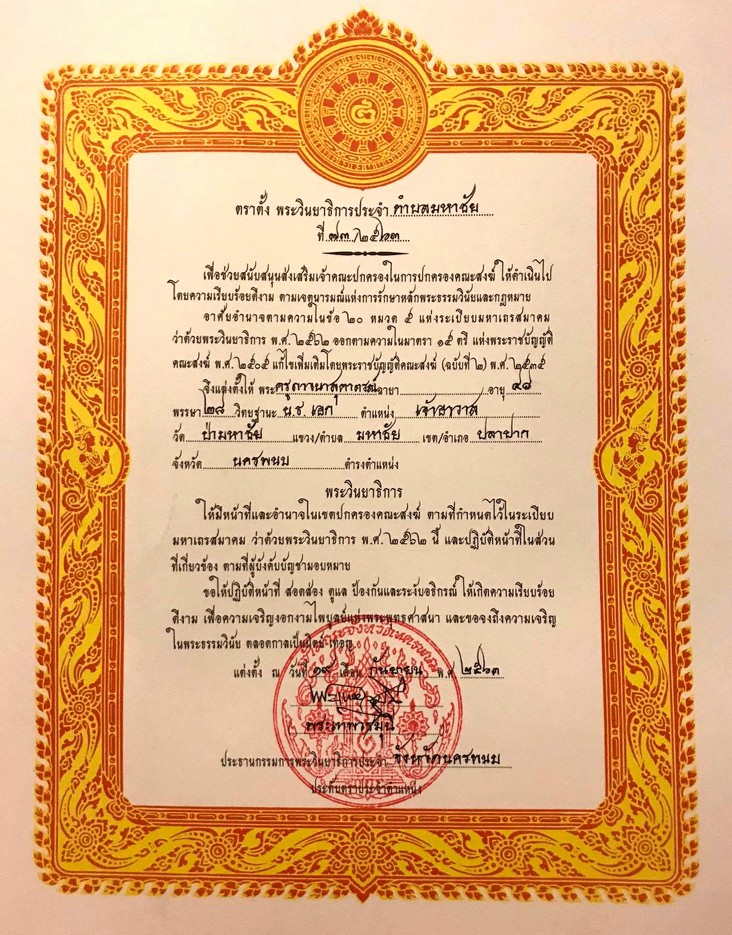 ตราตั้ง พระวินยาธิการประจำ ตำบลมหาชัย
ที่ ๗๓/๒๕๖๓
เพื่อช่วยสนับสนุนส่งเสริมเจ้าคณะปกครองในการปกครองคณะสงฆ์ ให้ดำเนินไป
โดยความเรียบร้อยดีงาม ตามเจตนารมณ์แห่งการรักษาหลักพระธรรมวินัยและกฎหมาย
อาศัยอำนาจตามความในข้อ ๒๐ หมวด ๕ แห่งระเบียบมหาเถรสมาคม
ว่าด้วยพระวินยาธิการ พ.ศ. ๒๕๖๒ ออกตามความในมาตรา ๑๕ ตรี แห่งพระราชบัญญัติ
คณะสงฆ์ พ.ศ. ๒๕๐๕ แก้ไขเพิ่มเติมโดยพระราชบัญญัติคณะสงฆ์ (ฉบับที่ ๒) พ.ศ. ๒๕๓๕
จึงแต่งตั้งให้ พระครูภาวนาสุตาภรณ์ ฉายา อายุ ๔๘
พรรษา ๒๘ วิทยฐานะ น.ธ. เอก ตำแหน่ง เจ้าอาวาส
วัด ป่ามหาชัย แขวง/ตำบล มหาชัย เขต/อำเภอ ปลาปาก
จังหวัด นครพนม ดำรงตำแหน่ง
พระวินยาธิการ
ให้มีหน้าที่และอำนาจในเขตปกครองคณะสงฆ์ ตามที่กำหนดไว้ในระเบียบ
มหาเถรสมาคม ว่าด้วยพระวินยาธิการ พ.ศ. ๒๕๖๒ นี้ และปฏิบัติหน้าที่ในส่วน
ที่เกี่ยวข้อง ตามที่ผู้บังคับบัญชามอบหมาย
ขอให้ปฏิบัติหน้าที่ สอดส่อง ดูแล ป้องกันและระงับอธิกรณ์ ให้เกิดความเรียบร้อย
ดีงาม เพื่อความเจริญงอกงามไพบูลย์แห่งพระพุทธศาสนา และขอจงถึงความเจริญ
ในพระธรรมวินัย ตลอดกาลเป็นนิตย์ เทอญ
แต่งตั้ง ณ วันที่ ๑๙ เดือน กันยายน พ.ศ. ๒๕๖๓
พระเทพวรมุนี
ประธานกรรมการพระวินยาธิการประจำ จังหวัดนครพนม
ประทับตราประจำตำแหน่ง